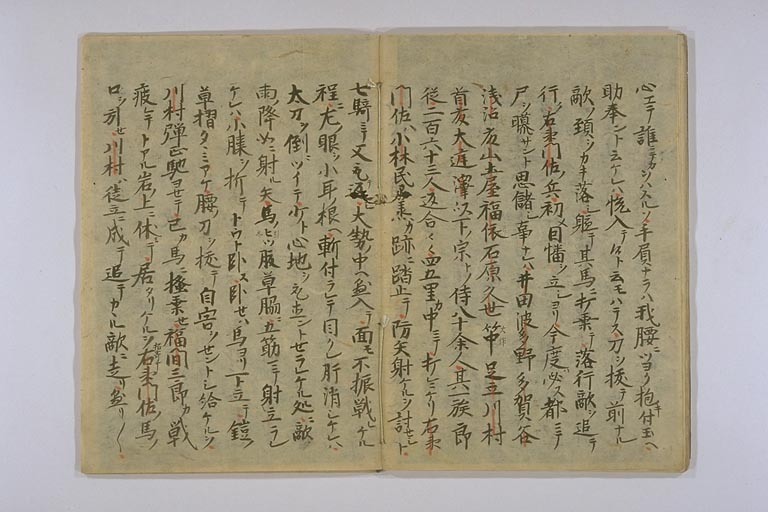 心エテ誰ニテカワハスルソ手負ナラハ我腰ニツヨク抱付玉ヘ
助奉ントテ云ケレハ悦入テ候ト云モハテス刀ヲ抜テ前ナル
敵ノ頸ヲカキ落シ軈テ其馬ニ打乗テ落行敵ヲ追テ
行ク右衛門佐ノ兵初メ因幡ヲ立シヨリ今度ハ必ス都ニテ
尸ヲ曝サント思儲シ事ナレハ井田波多野多賀谷
浅沼友山土屋福依石原久世竹中足立川村
首友大庭澤以下宗トノ侍八十余人其一族郎
従二百六十三人返合〱四五里カ中ニテ打レニケリ右衛
門佐ハ小林民部烝カ跡ニ踏止テ防矢射ケルヲ討セシト
七騎ニテ又元返大勢ノ中ヘ蒐入テ面モ不振戦ヒケル
程ニ左ノ眼ヲ小耳ノ根ヘ斬付ラレテ目クレ肝消シケレハ
太刀ヲ倒ニツイテ少ト心地ヲ元直ントセラレケル処ニ敵ノ
雨ノ降如ニ射ル矢馬ノヒツ腹草脇ニ五筋ニテ射立ラレ
ケレハ小膝ヲ折テトウト卧ス卧セハ馬ヨリ下立テ鎧ノ
草摺タヽミアケ腰ノ刀ヲ抜テ自害ヲセントシ給ケルヲ
川村弾正馳ヨセテ己カ馬ニ掻乗セ福間三郎カ戦
疲レテトアル岩ノ上ニ休ミテ居タリケルヲ右衛門佐ノ馬ノ
口ヲ引セ川村ハ徒立ニ成テ追テカヽル敵ニ走リ蒐リ〱